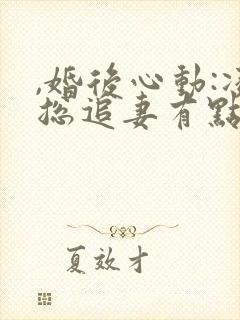 ,婚後心動:
總追妻有點
夏效才